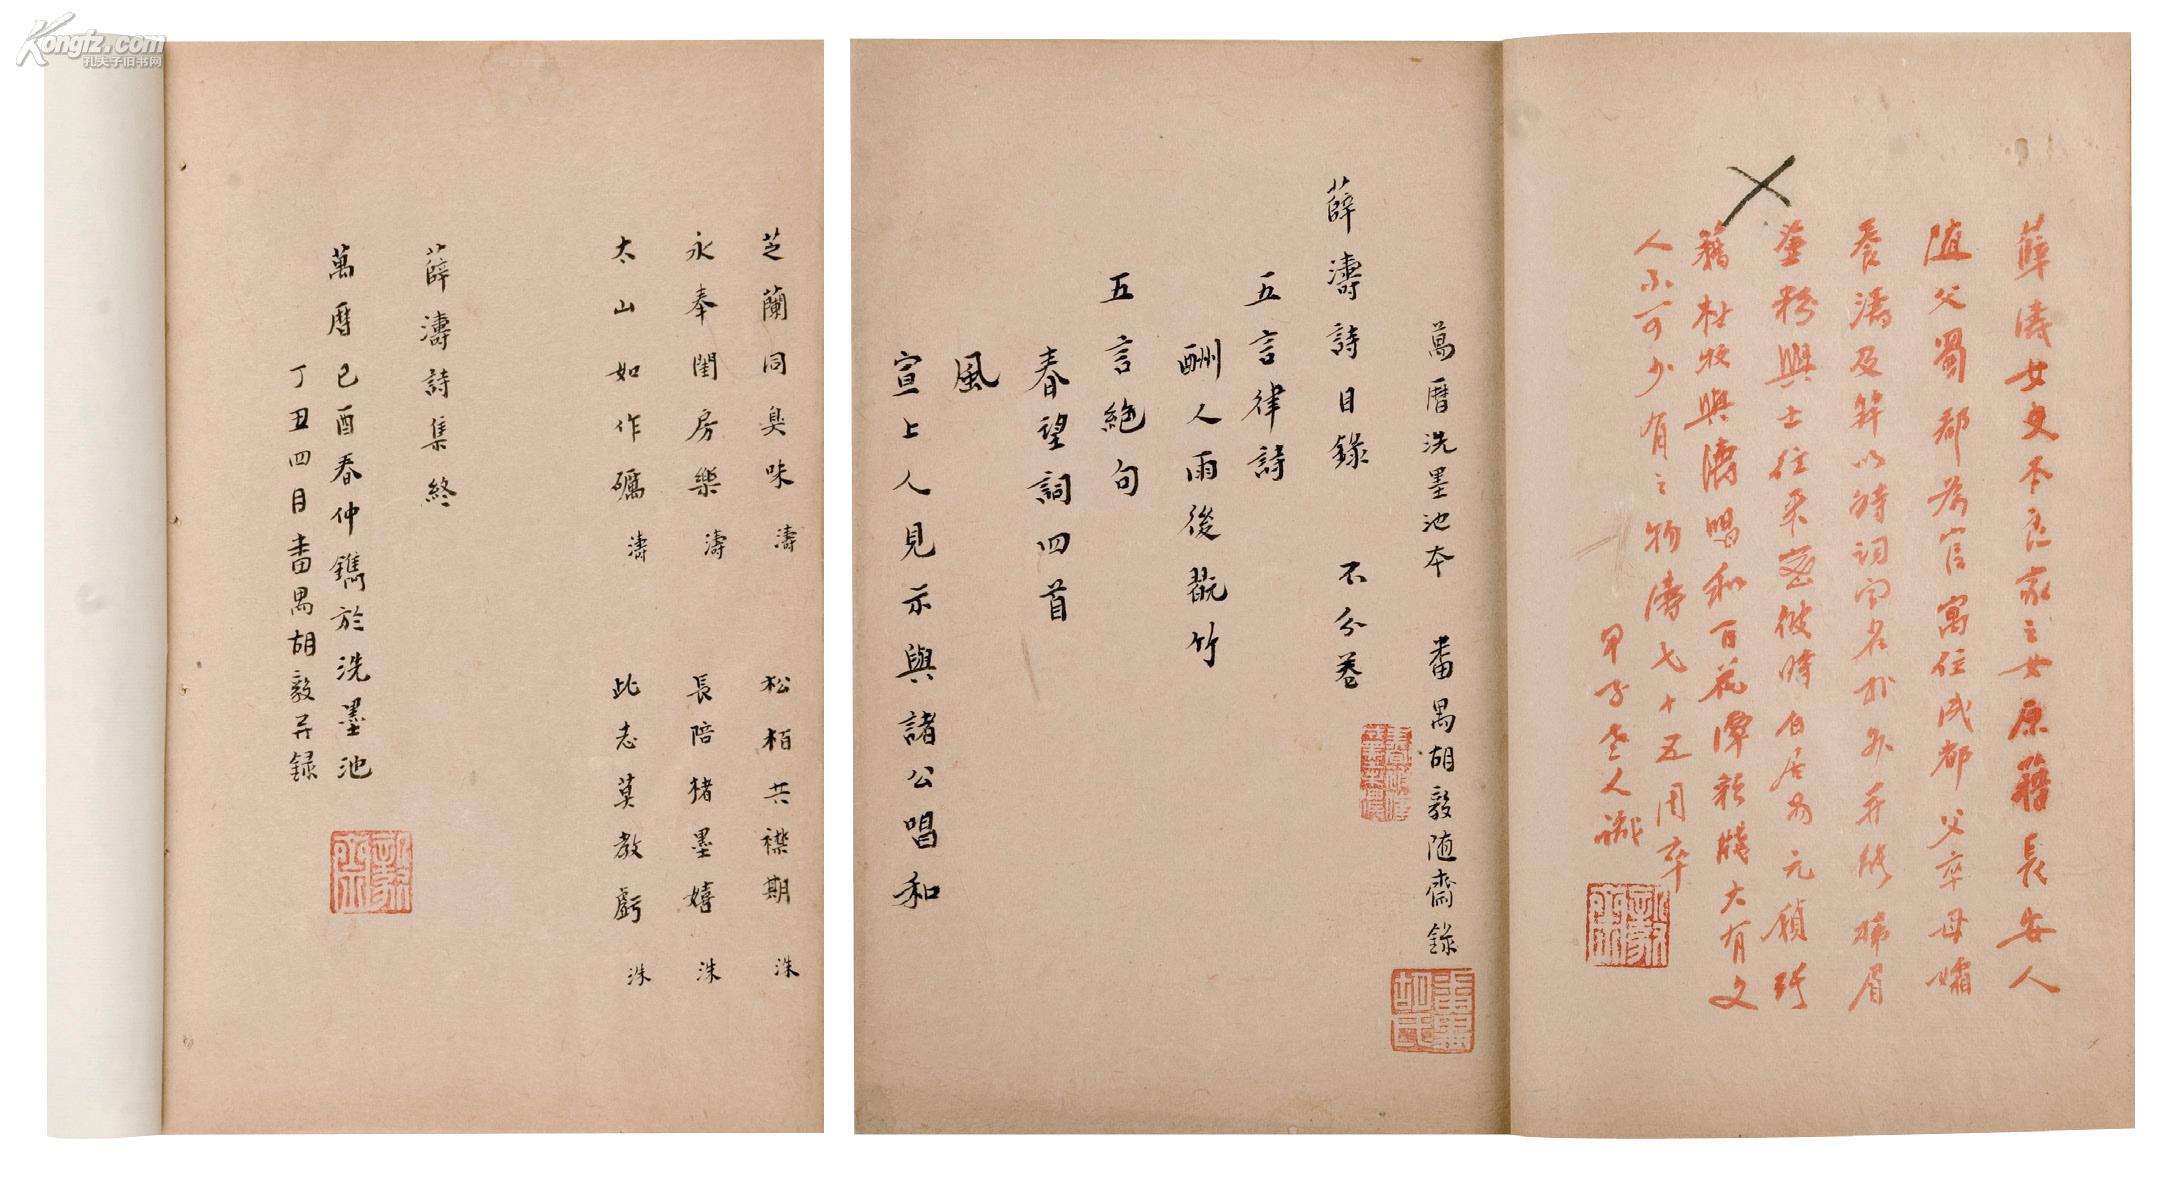 薛濤女史本良家之女原籍長安人
随父蜀都為官寓住成都父卒母孀
養濤及笄以詩詞聞名於外并後掃眉
塗粉與士往来密彼時白居易元稹张
籍杜牧與濤唱和百花潭彩牋大有文
人不可少有之物濤七十五用卒
甲子老人識
萬曆洗墨池本 番禺胡毅随齋錄
薛濤詩目錄 不分卷
五言律詩
酬人雨後翫竹
五言絕句
春望詞四首
風
宣上人見示與諸公唱和
芝蘭同臭味 濤 松栢共襟期 洙
永奉閨房樂 濤 長陪楮墨嬉 洙
太山如作礪 濤 此志莫教虧 洙
薛濤詩集終
萬曆己酉春仲鐫於洗墨池
丁丑四月番禺胡毅并録
番禺胡氏
Kongfz.com
孔夫子旧书网